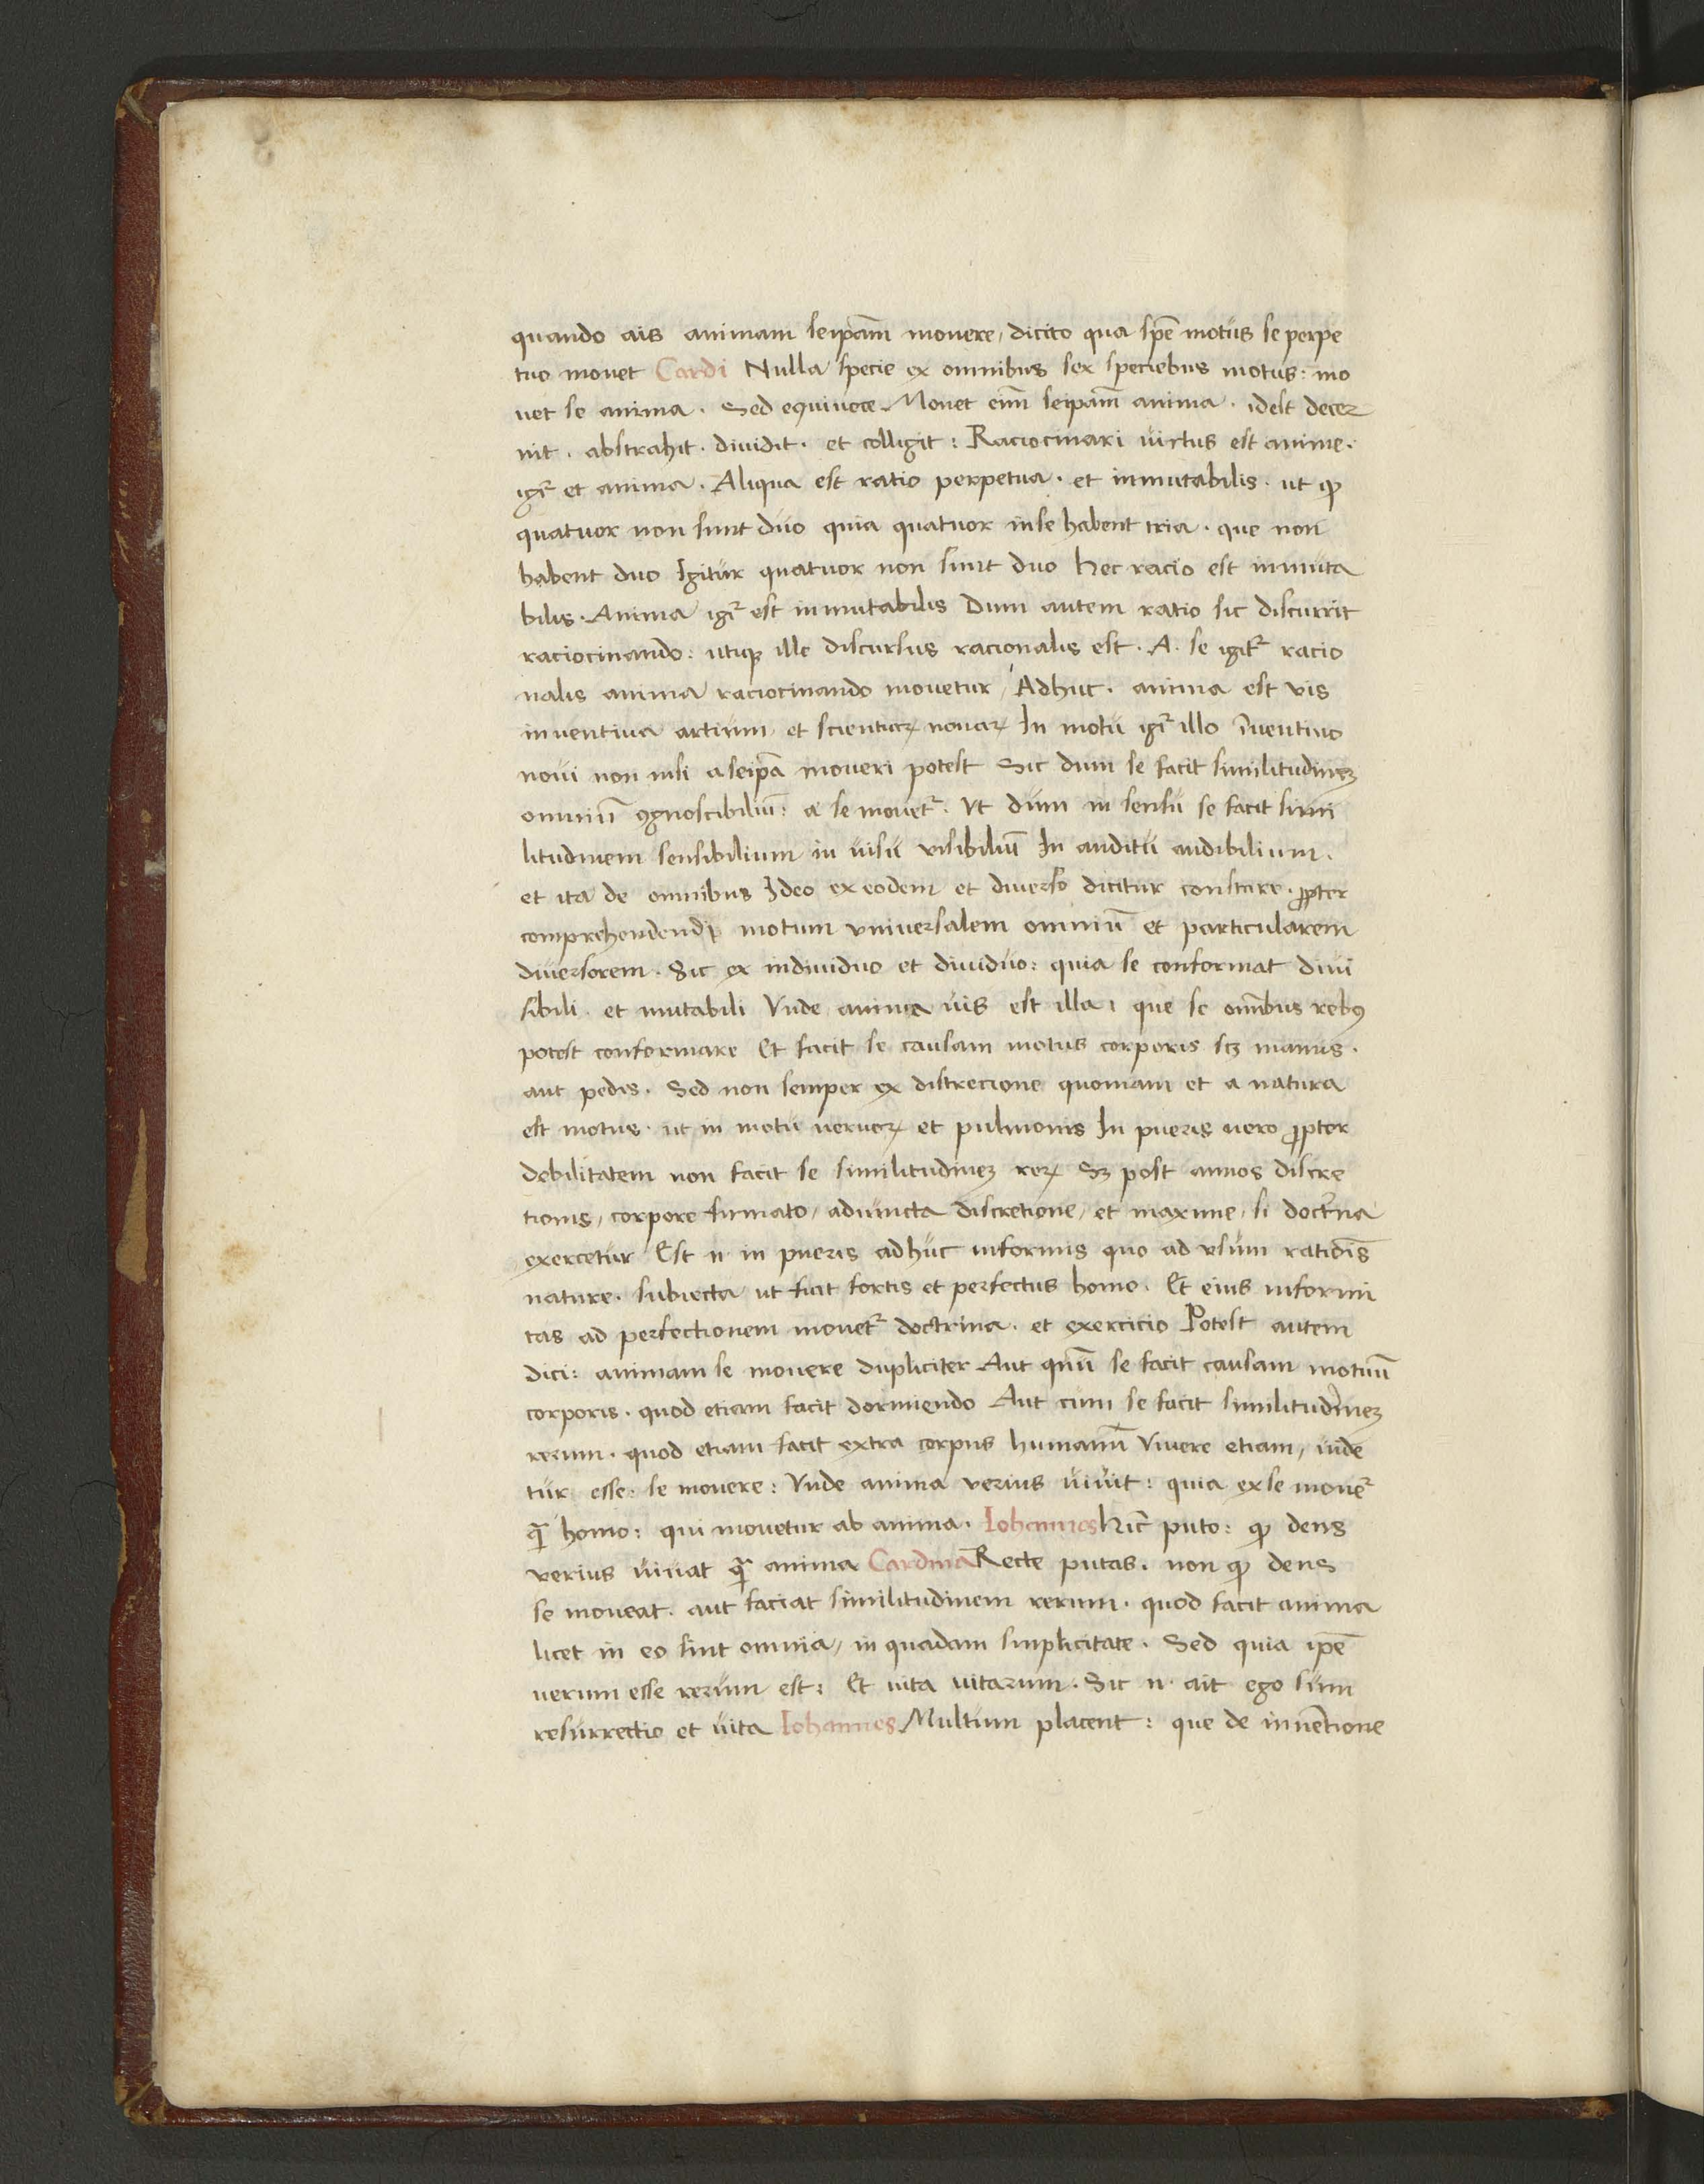 quando ais animam seip̄am mouere, dicito qua sp̄e motus se perpe
tuo mouet Cardi Nulla specie ex omnibus sex speciebus motus: mo
uet se anima. Sed equiuoce. Mouet eīm seip̄am anima. idest decer
nit. abstrahit. diuidit. et colligit: Raciocinari uirtus est anime.
igr̄ et anima. Aliqua est ratio perpetua. et inmutabilis. ut ꝙ
quatuor non sunt duo quia quatuor inse habent tria. que non
habent duo Igitur quatuor non sunt duo hec racio est inmuta
bilis. Anima igr̄ est inmutabilis Dum autem ratio sic discurrit
raciocinando: utiqꝫ ille discursus racionalis est. A. se igit᷑ racio
nalis anima raciocinando mouetur, Adhuc. anima est vis
inuentiua artium, et scientiaꝝ nouaꝝ In motu igr̄ illo īuentiuo
noui non nisi aseip̄a moueri potest Sic dum se facit similitudineꝫ
omniū ꝯgnoscibiliū: a se mouet᷑. Vt dum in sensu se facit simi
litudinem sensibilium in uisu visibiliū In auditu audibilium.
et ita de omnibus Ideo ex eodem et diuerso dicitur constare. ꝓpter
comprehendendi motum vniuersalem omniū et particularem
diuersorem. Sic ex indiuiduo et diuiduo: quia se conformat diui
sibili. et mutabili Vnde anima uis est illa, que se om̄ibus rebꝰ
potest conformare Et facit se causam motus corporis scꝫ manus.
aut pedis. Sed non semper ex distrecione quoniam et a natura
est motus. ut in motu neruoꝝ et pulmonis In pueris uero ꝓpter
debilitatem non facit se similitudineꝫ reꝝ Sꝫ post annos discre
tionis, corpore firmato, adiuncta discretione, et maxime, si doct᷑na
exercetur Est n̄ in pueris adhuc informis quo ad vsum ratiōis
nature. subiecta ut fiat fortis et perfectus homo. Et eius informi
tas ad perfectionem mouet᷑ doctrina. et exercicio Potest autem
dici: animam se mouere dupliciter Aut qn̄ū se facit causam motuū
corporis. quod etiam facit dormiendo Aut cum se facit similitudineꝫ
rerum. quod etiam facit extra corpus humanū Viuere etiam, uide
tur esse. se mouere: Vnde anima verius uiuit: quia exse mouet᷑
qᷓ̄ homo: qui mouetur ab anima. Iohannes hīc puto: ꝙ deus
verius uiuat qᷓ̄ anima Cardina Recte putas. non ꝙ deus
se moueat. aut faciat similitudinem rerum. quod facit anima
licet in eo sint omnia, in quadam simplicitate. Sed quia ip̄e
uerum esse rerum est: Et uita uitarum. Sic n. ait ego sum
resurrectio et uita Iohannes Multum placent: que de inuētione